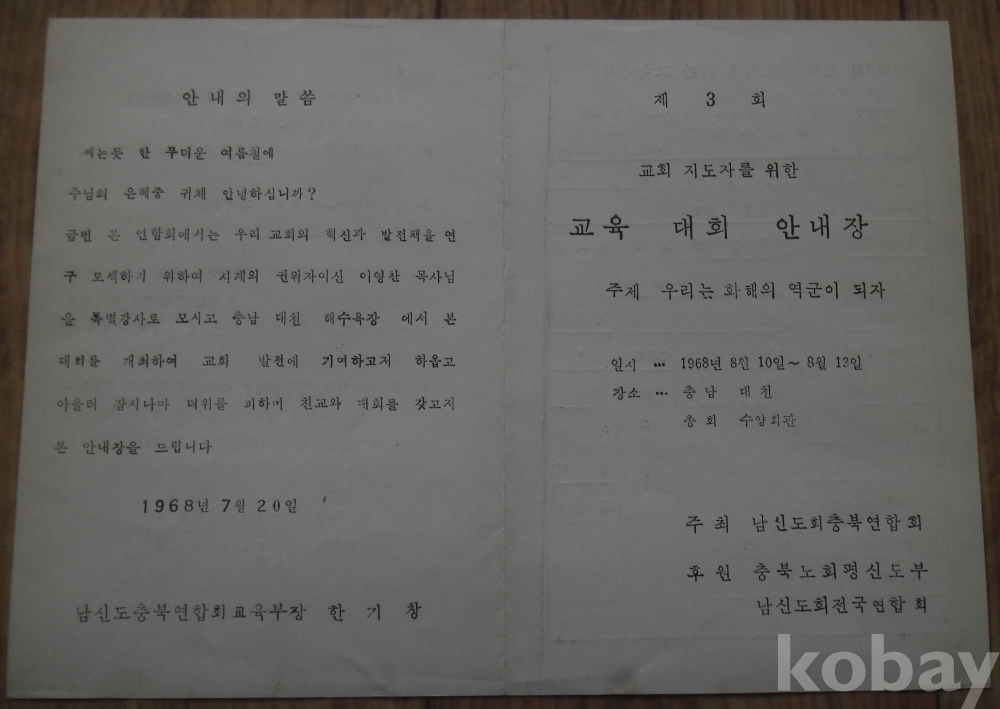 안내의 말씀
찌는듯 한 무더운 여름철에
주님의 은혜중 귀체 안녕하십니까?
금번 본 연합회에서는 우리 교회의 혁신과 발전책을 연
구 모색하기 위하여 시계의 권위자이신 이영찬 목사님
을 특별강사로 모시고 충남 대천 해수욕장 에서 본
대회를 개최하여 교회 발전에 기여하고저 하옵고
아울러 잠시나마 더위를 피하며 친교와 대회를 갖고저
본 안내장을 드립니다
1968년 7월 20일
남신도충북연합회교육부장 한기창
제 3 회
교회 지도자를 위한
교육 대회 안내장
주제 우리는 화해의 역군이 되자
일시 … 1968년 8월 10일~8월 13일
장소 … 충남 대천
총회 수양회관
주최 남신도회충북연합회
후원 충북노회평신도부
남신도회전국연합회
kobay